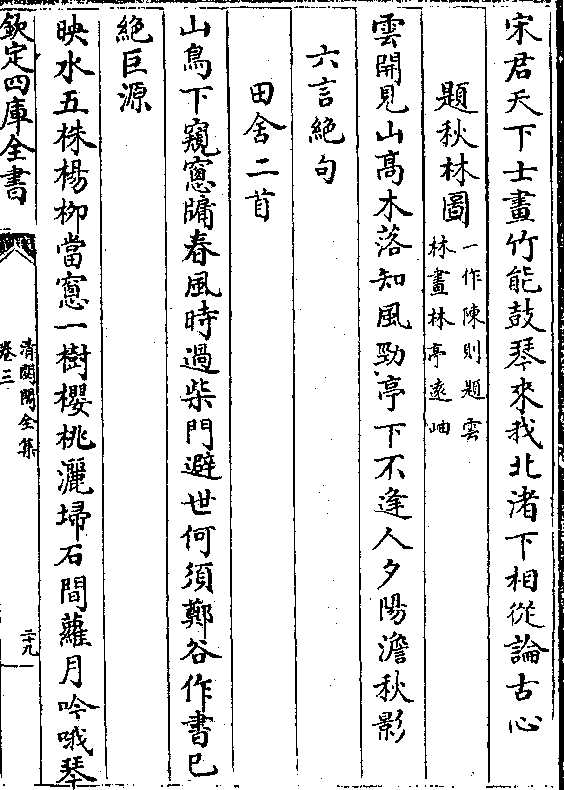 宋君天下士畫竹能鼓琴來我北渚下相從論古心
題秋林圖一作陳則題雲
林畫林亭遠岫
雲開見山高木落知風勁亭下不逢人夕陽澹秋影
六言絶句
田舍二首
山鳥下窺窻牖春風時過柴門避世何須鄭谷作書已
絶巨源
映水五株楊栁當窻一樹櫻桃灑埽石間蘿月吟哦琴
欽定四庫全書
清閟閣全集
卷三
二十九